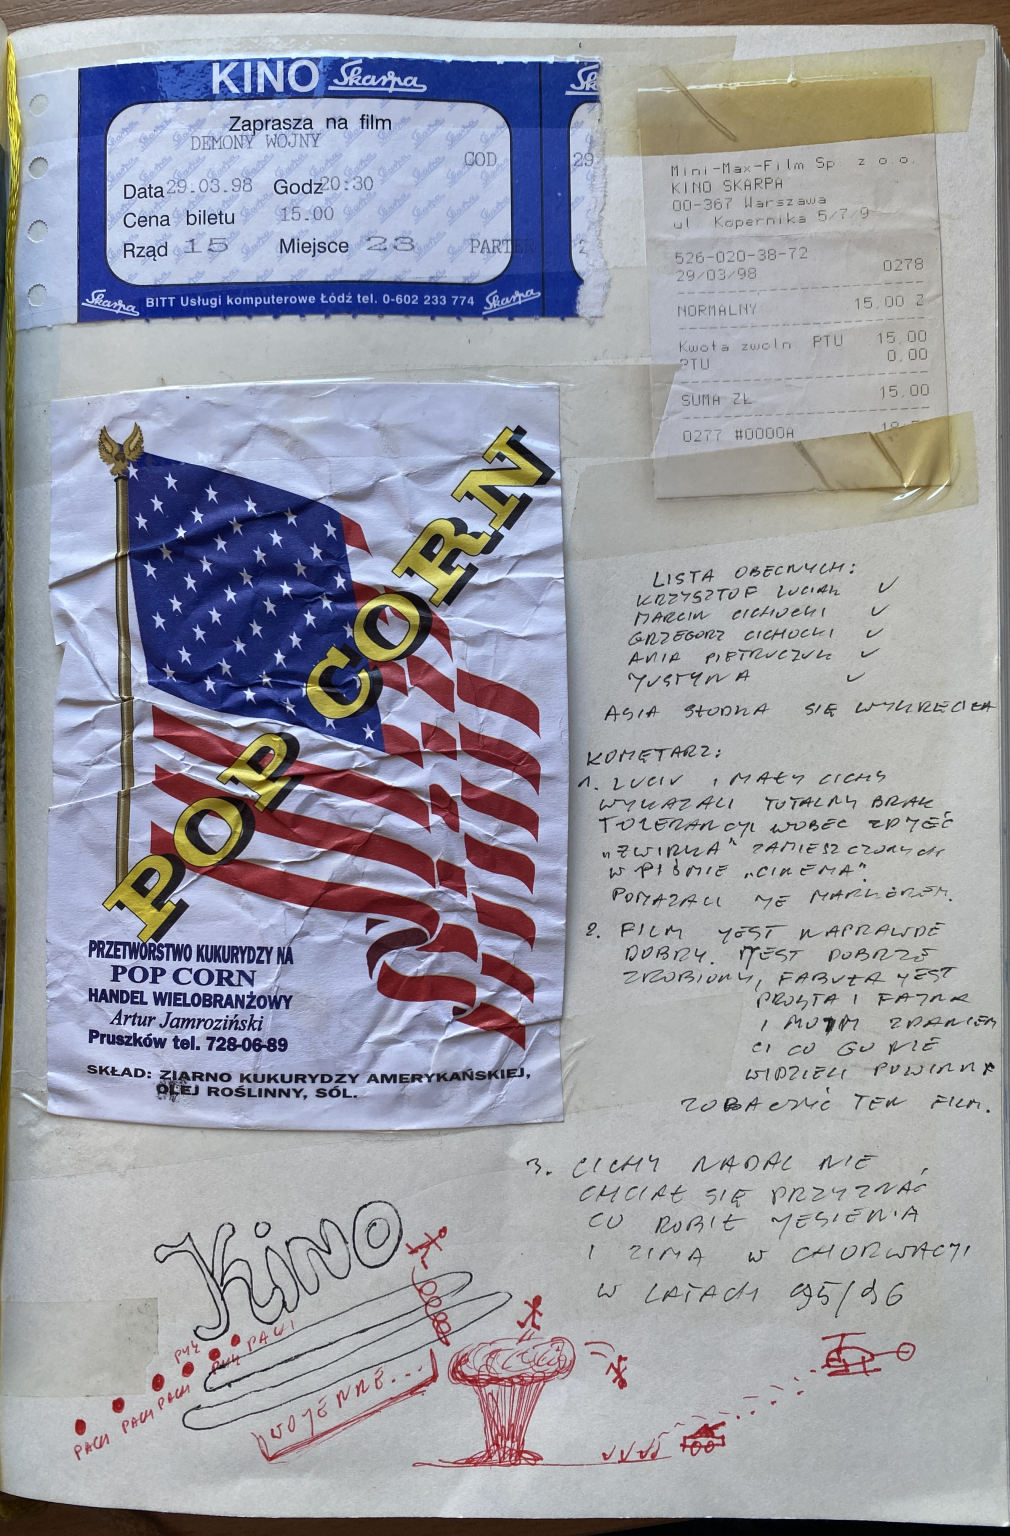 KINO Skarpa
Zaprasza na film
DEMONY WOJNY
COD
Data 29.03.98 Godz 20:30
Cena biletu 15.00
Rząd 15 Miejsce 23 PARTER
Skarpa BITT Usługi komputerowe Łódź tel. 0-602 233 774 Skarpa
Sk
29.
2
Mini-Max-Film Sp. z o.o.
KINO SKARPA
00-367 Warszawa
ul Kopernika 5/7/9
526-020-38-72
29/03/98 0278
NORMALNY 15,00 Z
Kwota zwoln PTU 15,00
PTU 0.00
SUMA ZŁ 15.00
0277 #0000A
POP CORN
PRZETWÓRSTWO KUKURYDZY NA
POP CORN
HANDEL WIELOBRANŻOWY
Artur Jamroziński
Pruszków tel. 728-06-89
SKŁAD: ZIARNO KUKURYDZY AMERYKAŃSKIEJ,
OLEJ ROŚLINNY, SÓL.
LISTA OBECNYCH:
KRZYSZTOF LUCIAK ✓
MARCIN CICHOCKI ✓
GRZEGORZ CICHOCKI ✓
ANIA PIETRUCZUK ✓
JUSTYNA ✓
ASIA SŁODKA SIĘ WYKRĘCIŁA
KOMĘTARZ:
1. LUCIU I MAŁY CICHY
WYKAZALI TOTALNY BRAK
TOLERANCYI WOBEC ZDJĘĆ
„ŻWIRKA" ZAMIESZCZONYCH
W PIŚMIE „CINEMA".
POMAZALI JE MARKEREM.
2. FILM JEST NAPRAWDĘ
DOBRY. JEST DOBRZE
ZROBIONY, FABUŁA JEST
PROSTA I FAJNA
I MOIM ZDANIEM
CI CO GO NIE
WIDZIELI POWINNI
ZOBACZYĆ TEN FILM.
3. CICHY NADAL NIE
CHCIAŁ SIĘ PRZYZNAĆ
CO ROBIŁ JESIENIĄ
I ZIMĄ W CHORWACJI
W LATACH 95/96
Kino
WOJENNE...
PACH PACH PACH PUH PUH PACH